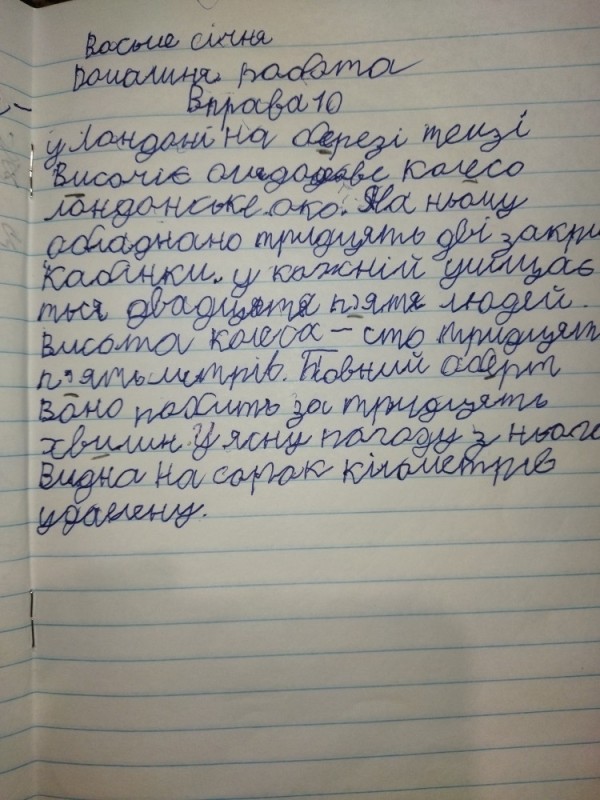 Восьме січня
Домашня робота
Вправа 10
у Лондоні на березі темзі
Височіє оглядове колесо
лондонське око. На ньому
обладнано тридцять дві закри
кабінки. у кожній уміщає
ться двадцять п'ять людей.
Висота колеса – сто тридцят
п'ять метрів. Повний оберт
воно робить за тридцять
хвилин. У ясну погоду з нього
видна на сорок кілометрів
удалену.